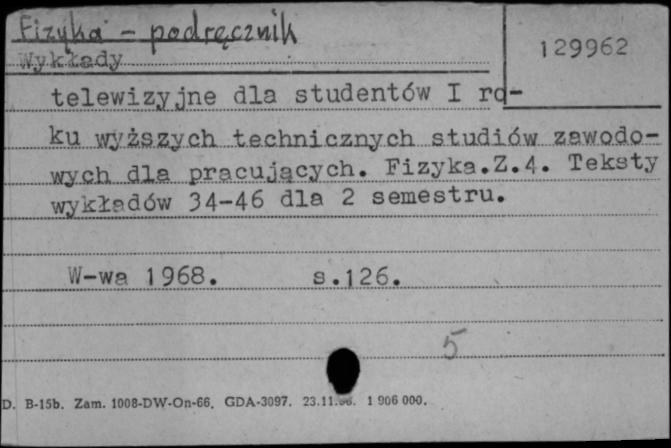 Fizyka - podręcznik
129962
Wykłady
telewizyjne dla studentów I ro-
ku wyższych technicznych studiów zawodo-
wych dla pracujących. Fizyka.Z.4. Teksty
wykładów 34-46 dla 2 semestru.
W-wa 1968. s.126.
5
D. B-15b. Zam. 1008-DW-On-66. GDA-3097. 23.11. 1 906 000.